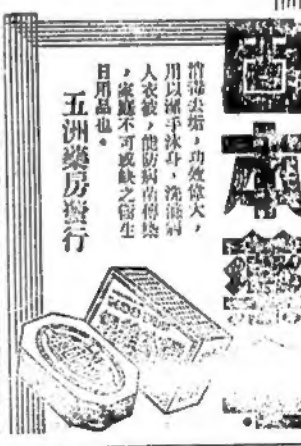 固本
消毒去垢，功效偉大，
用以濯手沐身，洗滌病
人衣被，能防病菌傳染
，家庭不可或缺之衞生
日用品也。
五洲藥房發行